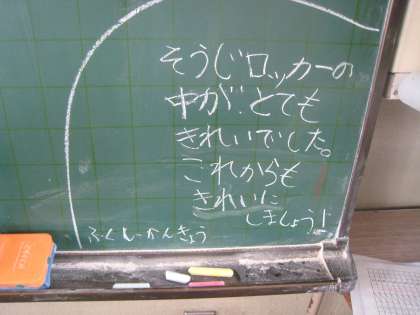 そうじロッカーの
中が、とても
きれいでした。
これからも
きれいに
しましょう!
ふくしーかんきょう